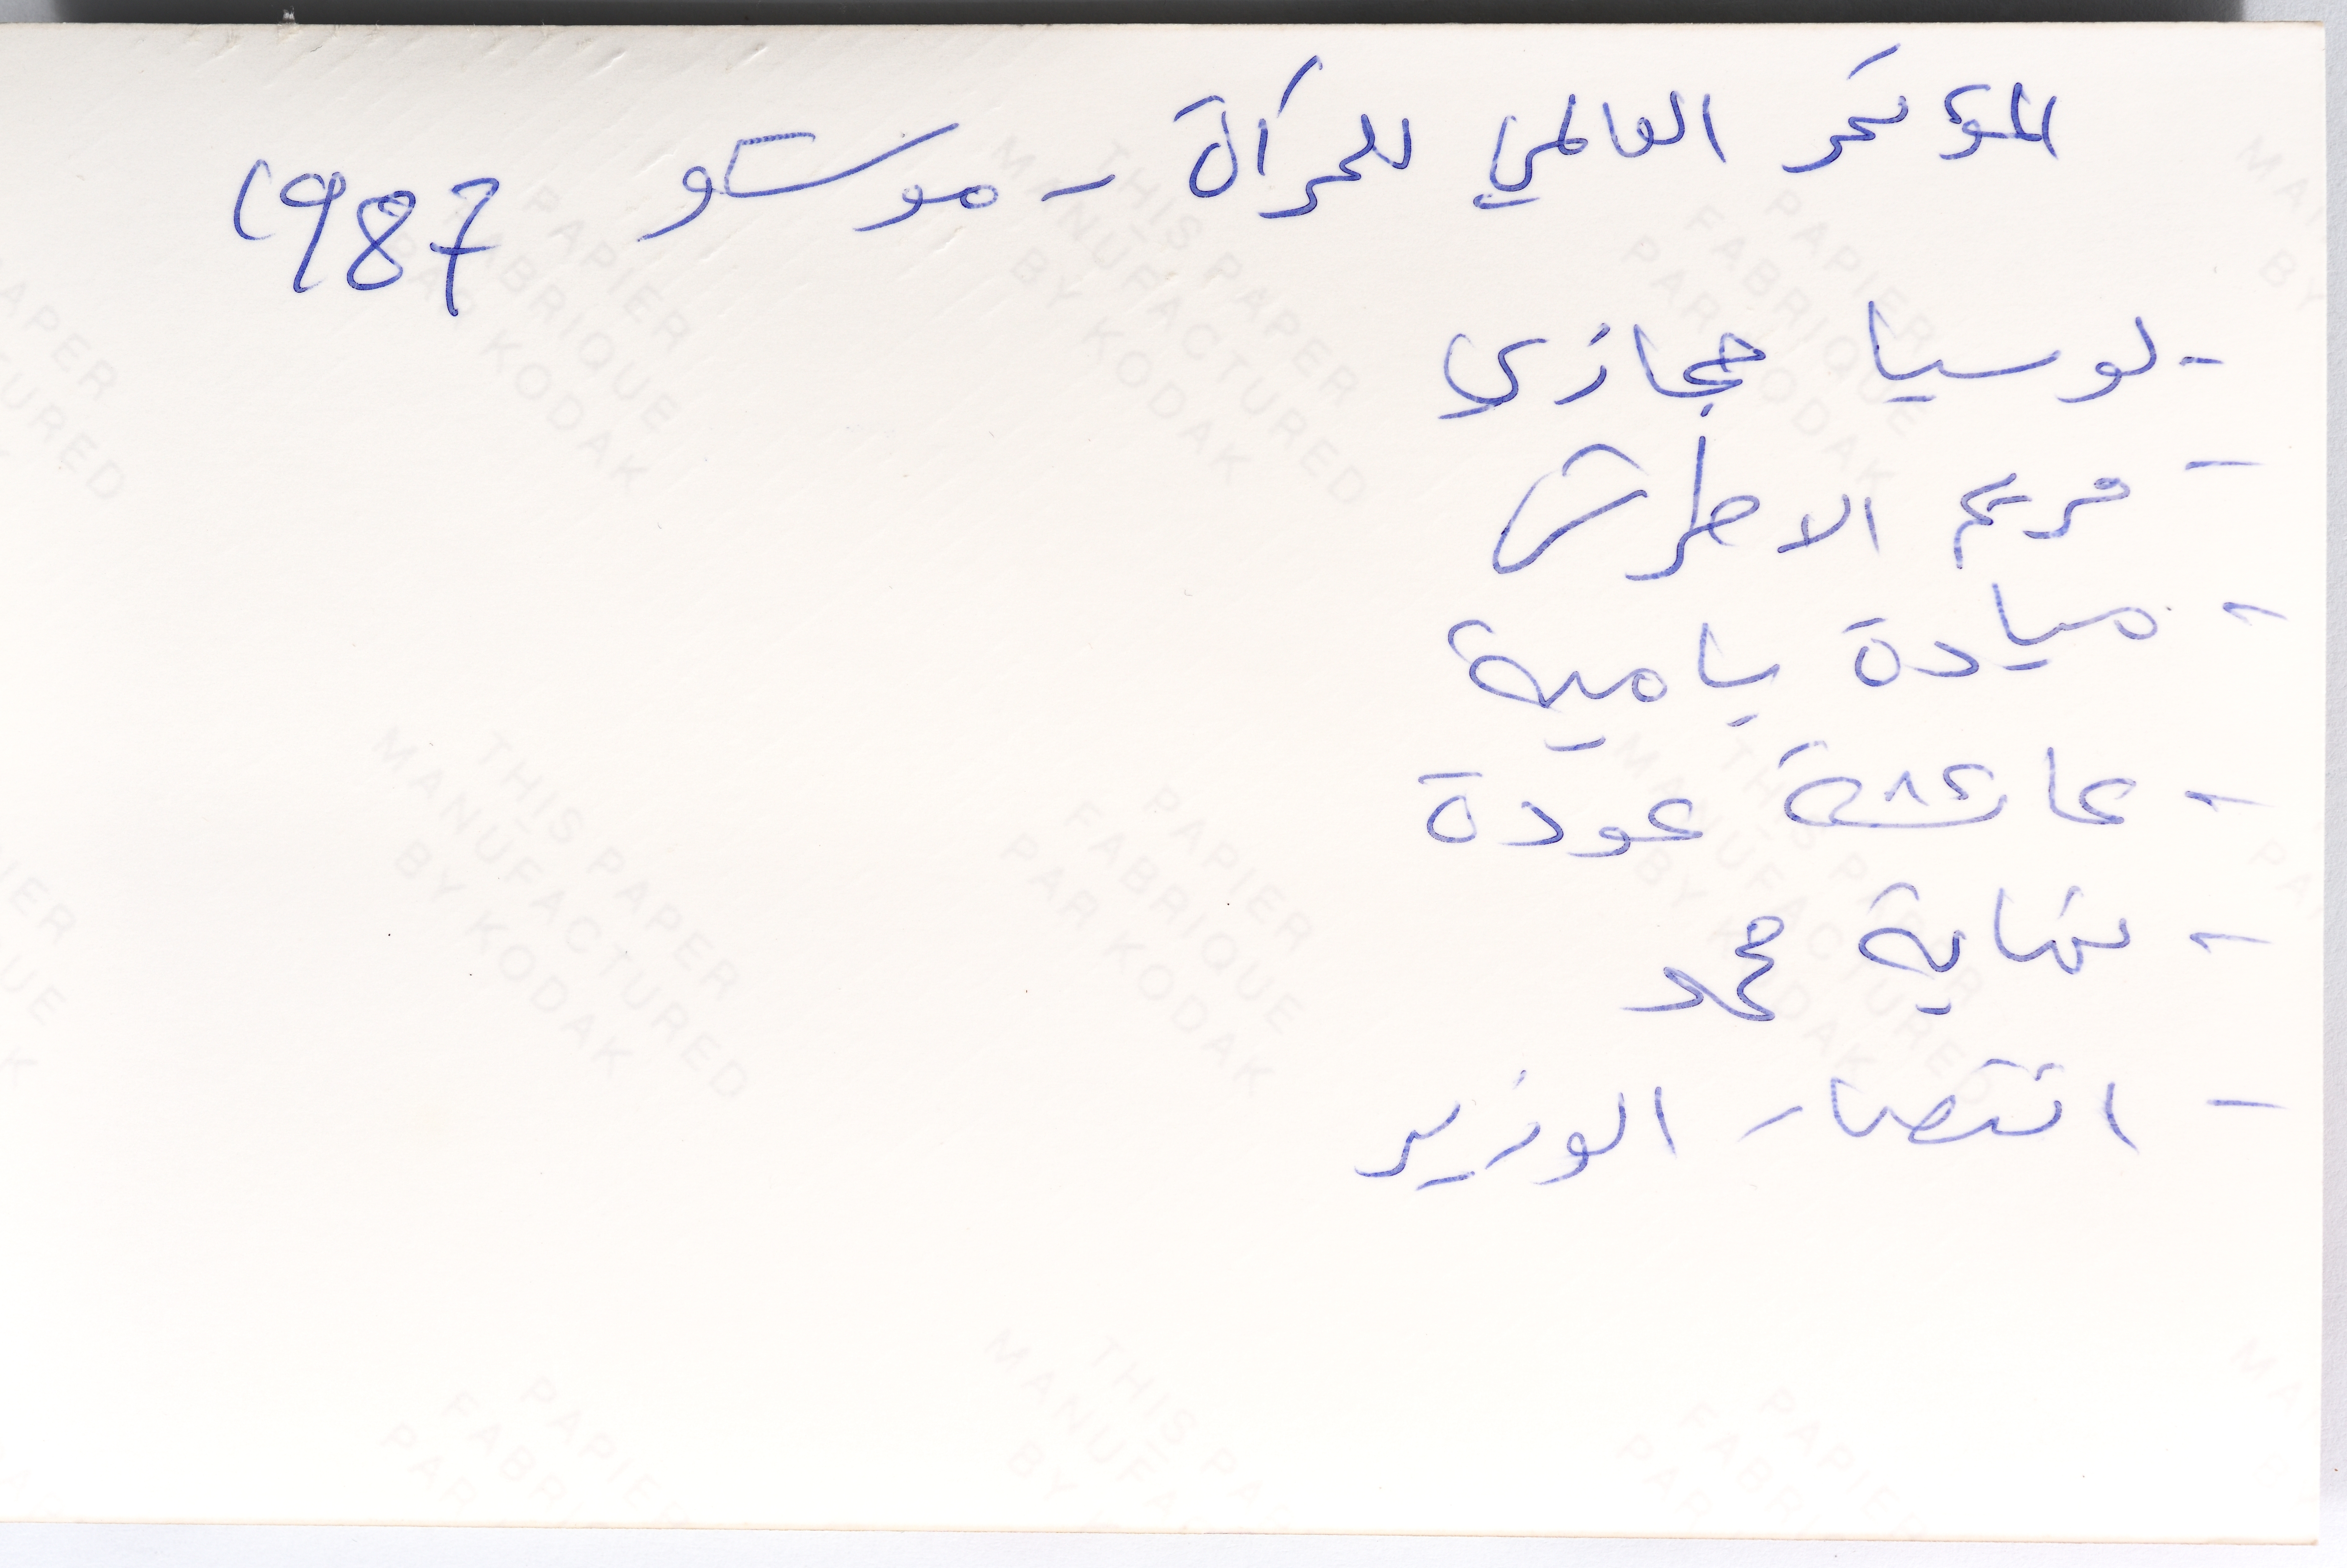 المؤتمر العالمي للمرأة - موسكو 1987
- لوسيا حجازي
- مريم الاطرش
- ميادة بامية
- عائشة عودة
- نهاية محمد
- انتصار الوزير
THIS PAPER
MANUFACTURED
BY KODAK
PAPIER
FABRIQUE
PAR KODAK